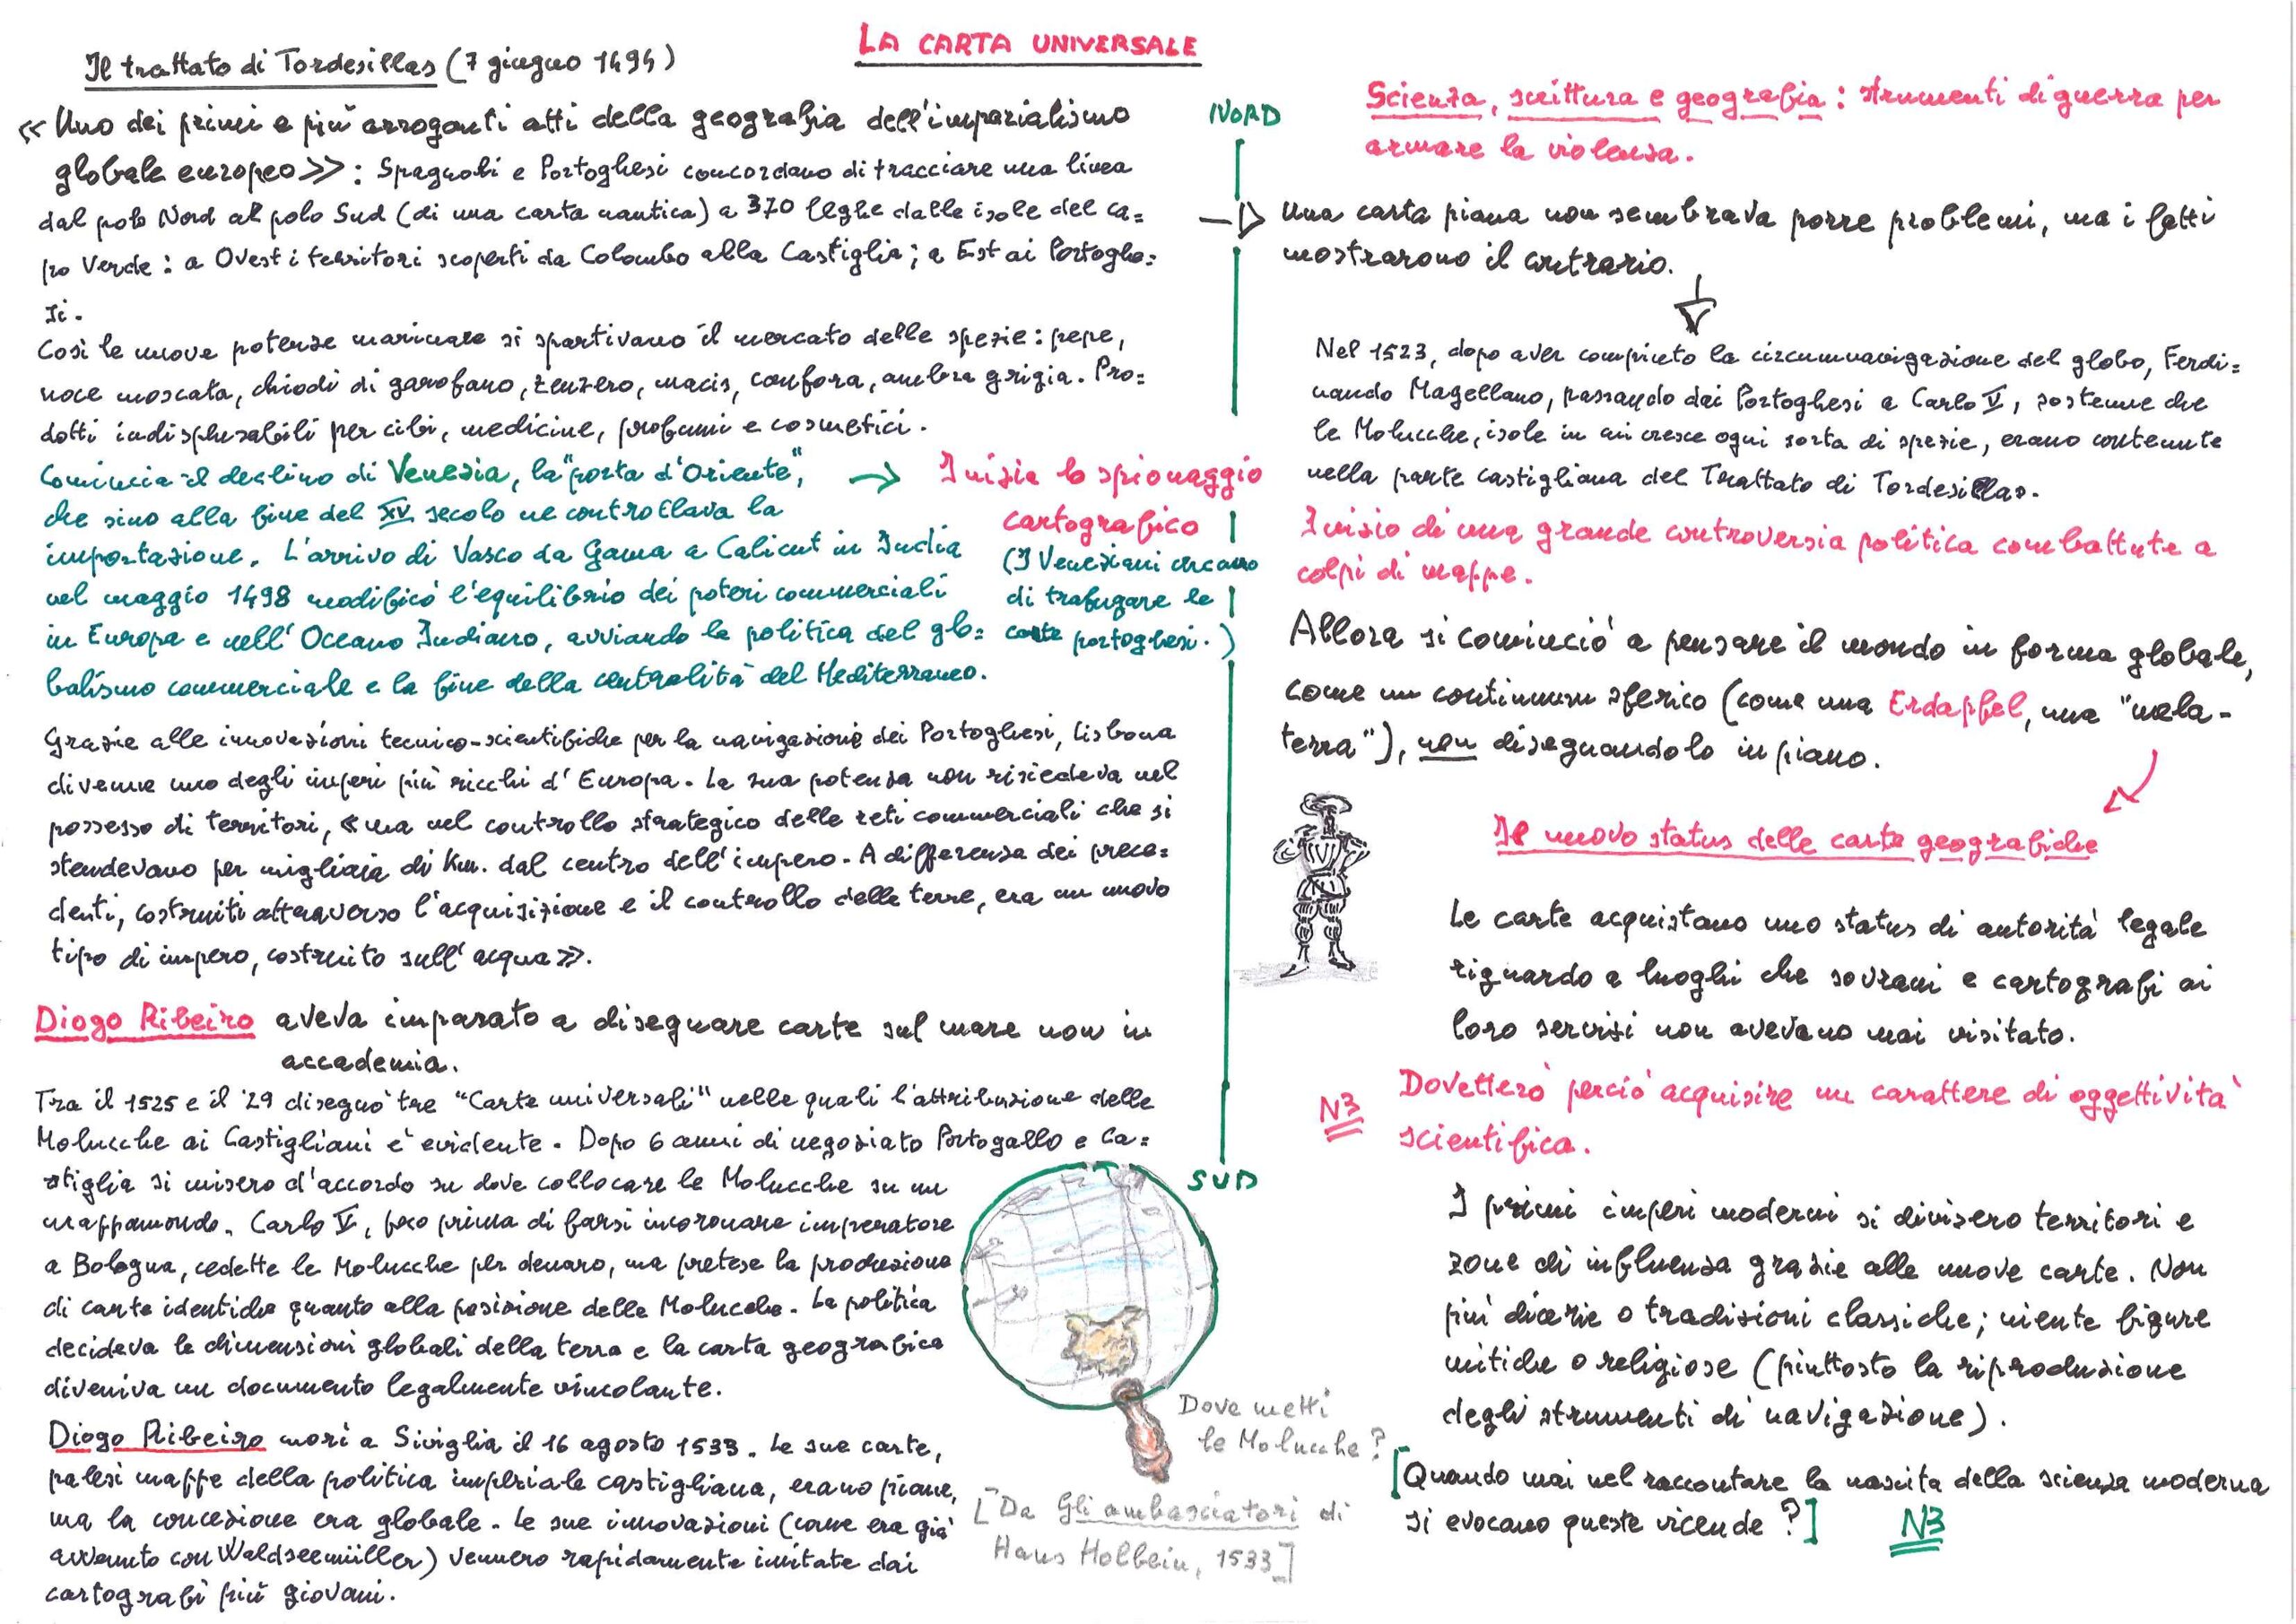 LA CARTA UNIVERSALE
Il trattato di Tordesillas (7 giugno 1494)
« Uno dei primi e più arroganti atti della geografia dell'imperialismo
globale europeo»: Spagnoli e Portoghesi concordano di tracciare una linea
dal polo Nord al polo Sud (di una carta nautica) a 370 leghe dalle isole del Ca=
po Verde: a Ovest i territori scoperti da Colombo alla Castiglia; a Est ai Portoghe=
si.
Così le nuove potenze marinare si spartivano il mercato delle spezie: pepe,
noce moscata, chiodi di garofano, zenzero, macis, canfora, ambra grigia. Pro=
dotti indispensabili per cibi, medicine, profumi e cosmetici.
Comincia il declino di Venezia, la "porta d'Oriente",
che sino alla fine del XV secolo ne controllava la
importazione. L'arrivo di Vasco da Gama a Calicut in India
nel maggio 1498 modificò l'equilibrio dei poteri commerciali
in Europa e nell'Oceano Indiano, avviando la politica del glo=
balismo commerciale e la fine della centralità del Mediterraneo.
→ Inizia lo spionaggio
cartografico
(I Veneziani cercano
di trafugare le
carte portoghesi.)
Grazie alle innovazioni tecnico-scientifiche per la navigazione dei Portoghesi, Lisbona
divenne uno degli imperi più ricchi d'Europa. La sua potenza non risiedeva nel
possesso di territori, «ma nel controllo strategico delle reti commerciali che si
stendevano per migliaia di km. dal centro dell'impero. A differenza dei prece=
denti, costruiti attraverso l'acquisizione e il controllo delle terre, era un nuovo
tipo di impero, costruito sull'acqua».
Diogo Ribeiro aveva imparato a disegnare carte sul mare non in
accademia.
Tra il 1525 e il '29 disegnò tre "Carte universali" nelle quali l'attribuzione delle
Molucche ai Castigliani è evidente. Dopo 6 anni di negoziato Portogallo e Ca=
stiglia si misero d'accordo su dove collocare le Molucche su un
mappamondo. Carlo V, poco prima di farsi incoronare imperatore
a Bologna, cedette le Molucche per denaro, ma pretese la produzione
di carte identiche quanto alla posizione delle Molucche. La politica
decideva le dimensioni globali della terra e la carta geografica
diveniva un documento legalmente vincolante.
Diogo Ribeiro morì a Siviglia il 16 agosto 1533. Le sue carte,
palesi mappe della politica imperiale castigliana, erano piane,
ma la concezione era globale. Le sue innovazioni (come era già
avvenuto con Waldseemüller) vennero rapidamente imitate dai
cartografi più giovani.
NORD
SUD
Dove metti
le Molucche?
[Da Gli ambasciatori di
Hans Holbein, 1533]
Scienza, scrittura e geografia: strumenti di guerra per
armare la violenza.
Una carta piana non sembrava porre problemi, ma i fatti
mostrarono il contrario.
Nel 1523, dopo aver compiuto la circumnavigazione del globo, Ferdi=
nando Magellano, passando dai Portoghesi a Carlo V, sostenne che
le Molucche, isole in cui cresce ogni sorta di spezie, erano contenute
nella parte castigliana del Trattato di Tordesillas.
Inizio di una grande controversia politica combattute a
colpi di mappe.
Allora si cominciò a pensare il mondo in forma globale,
come un continuum sferico (come una Erdapfel, una "mela-
terra"), non disegnandolo in piano.
Il nuovo status delle carte geografiche
Le carte acquistano uno status di autorità legale
riguardo a luoghi che sovrani e cartografi ai
loro servizi non avevano mai visitato.
N3 Dovettero perciò acquisire un carattere di oggettività
scientifica.
I primi imperi moderni si divisero territori e
zone di influenza grazie alle nuove carte. Non
più dicerie o tradizioni classiche; niente figure
mitiche o religiose (piuttosto la riproduzione
degli strumenti di navigazione).
[Quando mai nel raccontare la nascita della scienza moderna
si evocano queste vicende?] N3